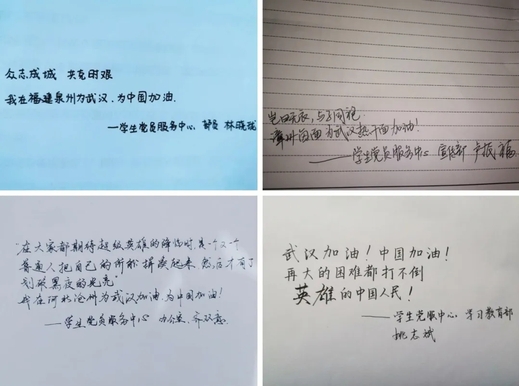 众志成城 共克时艰
我在福建泉州为武汉、为中国加油.
——学生党员服务中心 部员 林晓
岂曰无衣,与子同袍
面为武汉热干面加油!
——学生党员服务中心 宣传部
"在大家都期待超级英雄的降临时,是一个又一个
普通人把自己的所能拼凑起来,然后才有了
划破黑夜的光亮."
我在河北沧州为武汉加油,为中国加油!
——学生党员服务中心 办公室 齐双
武汉加油!中国加油!
再大的困难都打不倒
英雄的中国人民!
——学生党服中心 学习教育部
姚志斌